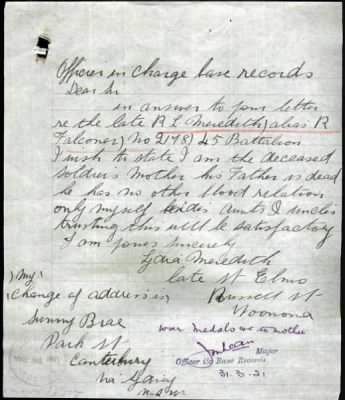 Officer in Charge base records
Dear Sir
in answer to your letter
re the late R L Meredith) alias R
Falconer) No 2178) 45 Battalion
I wish to state I am the deceased
soldiers Mother his Father is dead
he has no other blood relation
only myself besides aunts & uncles
trusting this will be satisfactory
I am yours sincerely
Lydia Meredith
late St Elmo
Russell St
Woonona
My
Change of address is
Sunny Brae
Park St
Canterbury
N.S.W.
War medals etc to mother
Major
Officer i/c Base Records
31.3.21